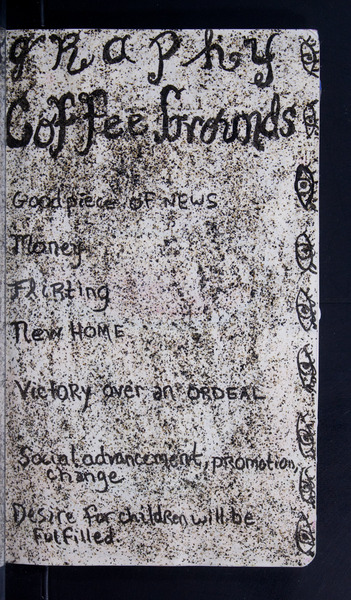 graphy
Coffee Grounds
Good piece of NEWS
Money
FLiRting
New HOME
Victory over an ORDEAL
Social advancement, promotion,
change
Desire for children will be
fulfilled